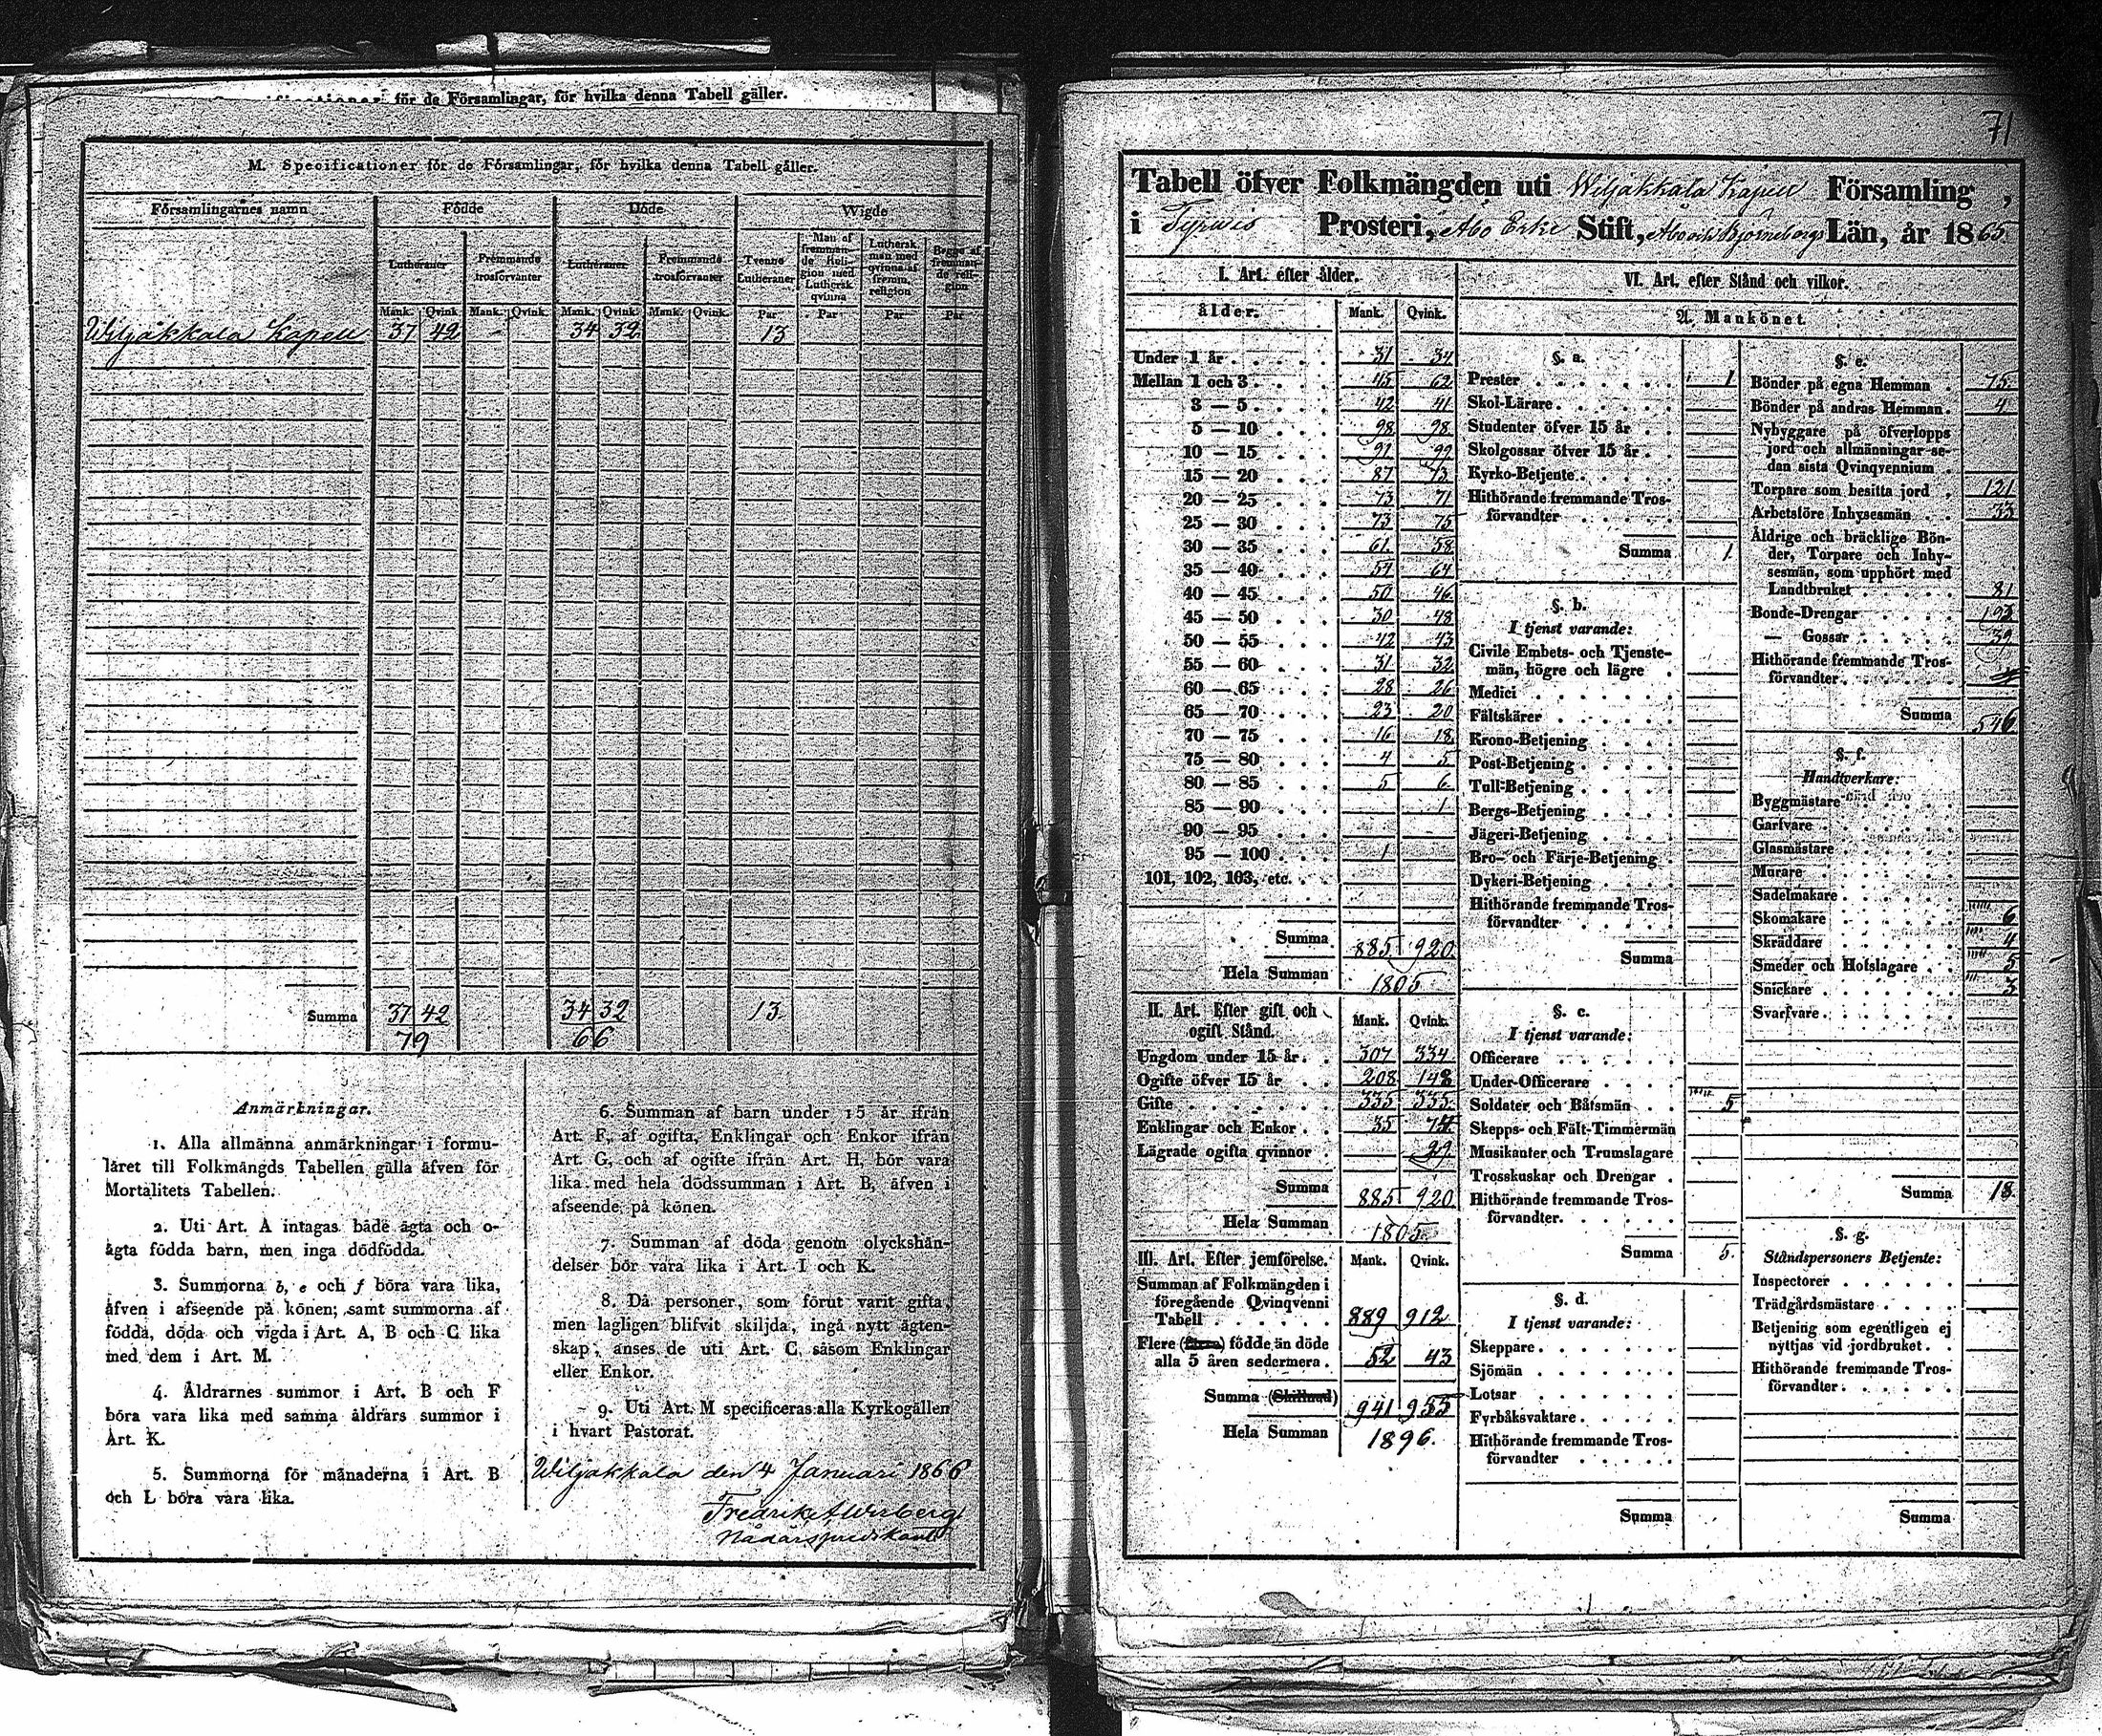 för de Församlingar, för hvilka denna Tabell gäller.
M. Specificationer för de Församlingar, för hvilka denna Tabell gäller.
Församlingarnes namn Födde Döde Wigde
Lutheraner Fremmande trosförvanter Lutheraner Fremmande trosförvanter Tvenne Lutheraner Man af fremmande Religion med Luthersk qvinna Luthersk man med qvinna af fremm. religion Begge af fremmande religion
Mank. Qvink. Mank. Qvink. Mank. Qvink. Mank. Qvink. Par Par Par Par
Wiljakkala Kapell 37 42 - 34 32 13
Summa 37 42 34 32 13
79 66
Anmärkningar.
1. Alla allmänna anmärkningar i formu-
läret till Folkmängds Tabellen gälla äfven för
Mortalitets Tabellen.
2. Uti Art. A intagas både ägta och o-
ägta födda barn, men inga dödfödda.
3. Summorna b, e och f böra vara lika,
äfven i afseende på könen; samt summorna af
födda, döda och vigda i Art. A, B och C lika
med dem i Art. M.
4. Åldrarnes summor i Art. B och F
böra vara lika med samma åldrars summor i
Art. K.
5. Summorna för månaderna i Art. B
och L böra vara lika.
6. Summan af barn under 15 år ifrån
Art. F, af ogifta, Enklingar och Enkor ifrån
Art. G, och af ogifte ifrån Art. H, bör vara
lika med hela dödssumman i Art. B, äfven i
afseende på könen.
7. Summan af döda genom olyckshän-
delser bör vara lika i Art. I och K.
8. Då personer, som förut varit gifta,
men lagligen blifvit skiljda, ingå nytt ägten-
skap, anses de uti Art. C, såsom Enklingar
eller Enkor.
9. Uti Art. M specificeras alla Kyrkogällen
i hvart Pastorat.
Wiljakkala den 4 Januari 1866
Fredrik
71
Tabell öfver Folkmängden uti Wiljakkala Kapell Församling,
i Tyrwis Prosteri, Åbo Erke Stift, Åbo och Björneborgs Län, år 1865.
I. Art. efter ålder.
ålder. Mank. Qvink.
Under 1 år 31 34
Mellan 1 och 3 45 62
3 — 5 42 41
5 — 10 98 98
10 — 15 91 99
15 — 20 87 73
20 — 25 73 71
25 — 30 73 75
30 — 35 61 58
35 — 40 54 64
40 — 45 50 46
45 — 50 30 48
50 — 55 42 43
55 — 60 31 32
60 — 65 28 26
65 — 70 23 20
70 — 75 16 18
75 — 80 4 5
80 — 85 5 6
85 — 90 1
90 — 95
95 — 100 1
101, 102, 103, etc.
Summa 885 920
Hela Summan 1805
II. Art. Efter gift och ogift Stånd. Mank. Qvink.
Ungdom under 15 år 307 334
Ogifte öfver 15 år 208 148
Gifte 335 335
Enklingar och Enkor 35
Lägrade ogifta qvinnor 29
Summa 885 920
Hela Summan 1805
III. Art. Efter jemförelse. Mank. Qvink.
Summan af Folkmängden i
föregående Qvinqvenni
Tabell 889 912
Flere (färre) födde än döde
alla 5 åren sedermera 52 43
Summa (Skillnad) 941 955
Hela Summan 1896.
VI. Art. efter Stånd och vilkor.
A. Mankönet.
§. a.
Prester 1
Skol-Lärare
Studenter öfver 15 år
Skolgossar öfver 15 år
Kyrko-Betjente
Hithörande fremmande Tros-
förvandter
Summa 1
§. b.
I tjenst varande:
Civile Embets- och Tjenste-
män, högre och lägre
Medici
Fältskärer
Krono-Betjening
Post-Betjening
Tull-Betjening
Bergs-Betjening
Jägeri-Betjening
Bro- och Färje-Betjening
Dykeri-Betjening
Hithörande fremmande Tros-
förvandter
Summa
§. c.
I tjenst varande:
Officerare
Under-Officerare
Soldater och Båtsmän 5
Skepps- och Fält-Timmermän
Musikanter och Trumslagare
Trosskuskar och Drengar
Hithörande fremmande Tros-
förvandter
Summa 5.
§. d.
I tjenst varande:
Skeppare
Sjömän
Lotsar
Fyrbåksvaktare
Hithörande fremmande Tros-
förvandter
Summa
§. e.
Bönder på egna Hemman 75
Bönder på andras Hemman 4
Nybyggare på öfverlopps
jord och allmänningar se-
dan sista Qvinqvennium
Torpare som besitta jord 121
Arbetsföre Inhysesmän 33
Åldrige och bräcklige Bön-
der, Torpare och Inhy-
sesmän, som upphört med
Landtbruket 81
Bonde-Drengar 193
— Gossar 39
Hithörande fremmande Tros-
förvandter
Summa 546
§. f.
Handtverkare:
Byggmästare
Garfvare
Glasmästare
Murare
Sadelmakare
Skomakare 6
Skräddare 4
Smeder och Hofslagare 5
Snickare 3
Svarfvare
Summa 18
§. g.
Ståndspersoners Betjente:
Inspectorer
Trädgårdsmästare
Betjening som egentligen ej
nyttjas vid jordbruket
Hithörande fremmande Tros-
förvandter
Summa